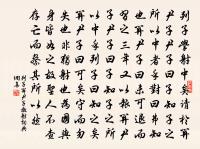 列子學射中矣請於關
尹子尹子曰子知子之
所以中者乎對曰弗知
也關尹子曰未可退而
習之三年又以報關尹
子尹子曰子知子之所
以中乎列子曰知之矣
關尹子曰可矣守而勿
失也非獨射也為國與
身皆如之故聖人不察
存亡而察其所以然